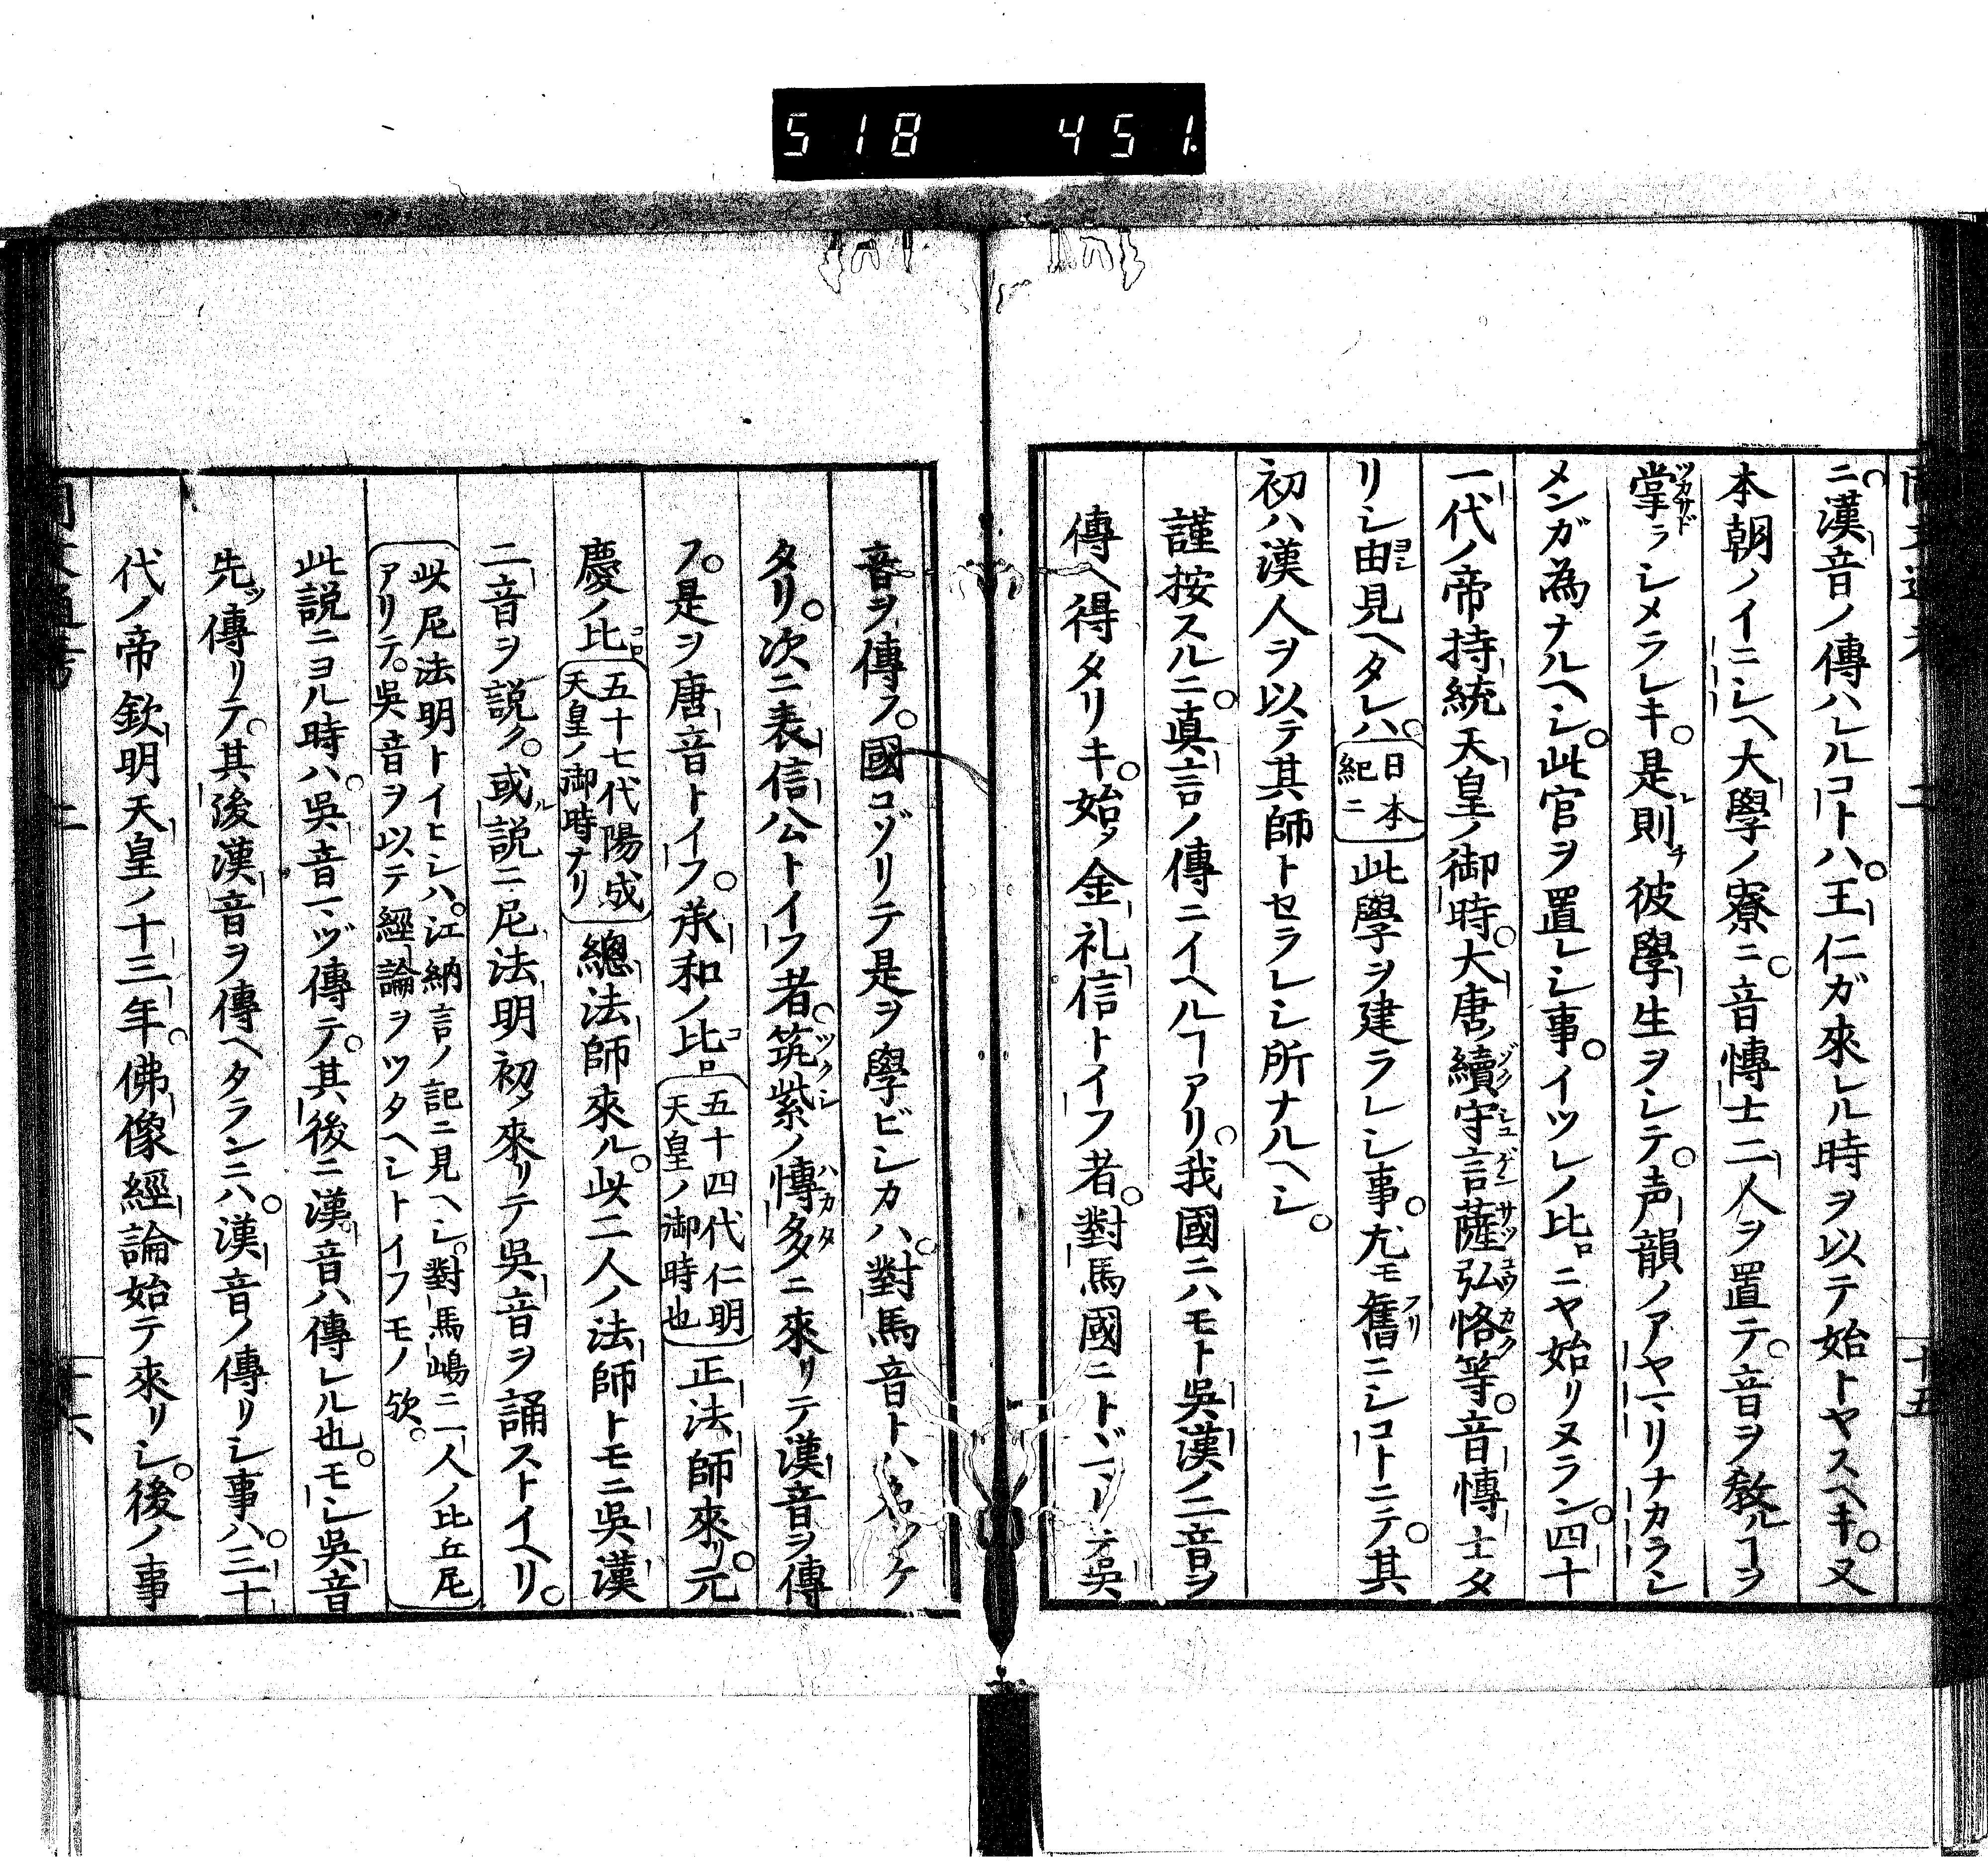 518 451.
ニ漢音ノ傳ハレルコトハ。王仁ガ來レル時ヲ以テ始トヤスヘキ。又
本朝ノイニシヘ大學ノ寮ニ。音博士二人ヲ置テ。音ヲ教ルヿヲ
掌ラシメラレキ。是則チ彼學生ヲシテ。声韻ノアヤマリナカラシ
メンガ為ナルヘシ。此官ヲ置レシ事。イツレノ比ロニヤ始リヌラン。四十
一代ノ帝持統天皇ノ御時。大唐ノ續守言薩弘恪等。音博士タ
リシ由見ヘタレハ。日本紀ニ此學ヲ建ラレシ事。尤モ舊ニシコトニテ。其
初ハ漢人ヲ以テ其師トセラレシ所ナルヘシ。
謹按スルニ。真言ノ傳ニイヘルヿアリ。我國ニハモト吳漢ノ二音ヲ
傳ヘ得タリキ。始メ金礼信トイフ者。對馬國ニトヾマリテ吳
音ヲ傳フ。國コゾリテ是ヲ學ビシカハ。對馬音トハ名ツケ
タリ。次ニ表信公トイフ者。筑紫ノ博多ニ來リテ漢音ヲ傳
フ。是ヲ唐音トイフ。承和ノ比ロ五十四代仁明天皇ノ御時也正法師來リ。元
慶ノ比五十七代陽成天皇ノ御時ナリ總法師來ル。此二人ノ法師トモニ吳漢
二音ヲ説ク。或ル説ニ尼法明初メ來リテ吳音ヲ誦ストイヘリ。
此尼法明トイヒシハ。江納言ノ記ニ見ヘシ。對馬嶋ニ一人ノ比丘尼
アリテ。吳音ヲ以テ經論ヲツタヘシトイフモノ歟。
此説ニヨル時ハ。吳音マヅ傳テ。其後ニ漢音ハ傳レル也。モシ吳音
先ツ傳リテ。其後漢音ヲ傳ヘタランニハ。漢音ノ傳リシ事ハ。三十
代ノ帝欽明天皇ノ十三年。佛像經論始テ來リシ。後ノ事